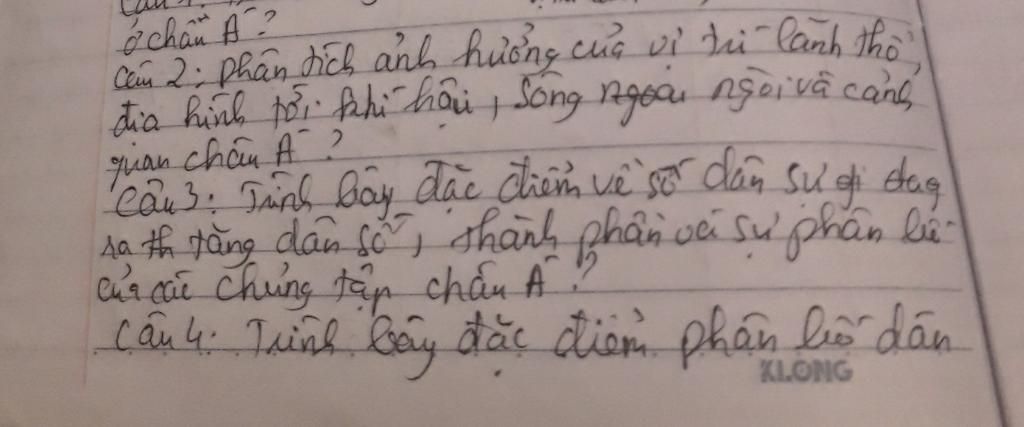 ở chấu Á ?
Câu 2: phân tích ảnh hưởng của vị trí lãnh thổ,
địa hình tới khí hậu, sông ngoài ngòi và cảnh
quan châu Á ?
Câu 3: Trình bày đặc điểm về số dân sự gi đag
ra th tăng dân số, thành phần và sự phân bố
của các chủng tập châu Á ?
Câu 4: Trình bày đặc điểm phân bố dân
KLONG